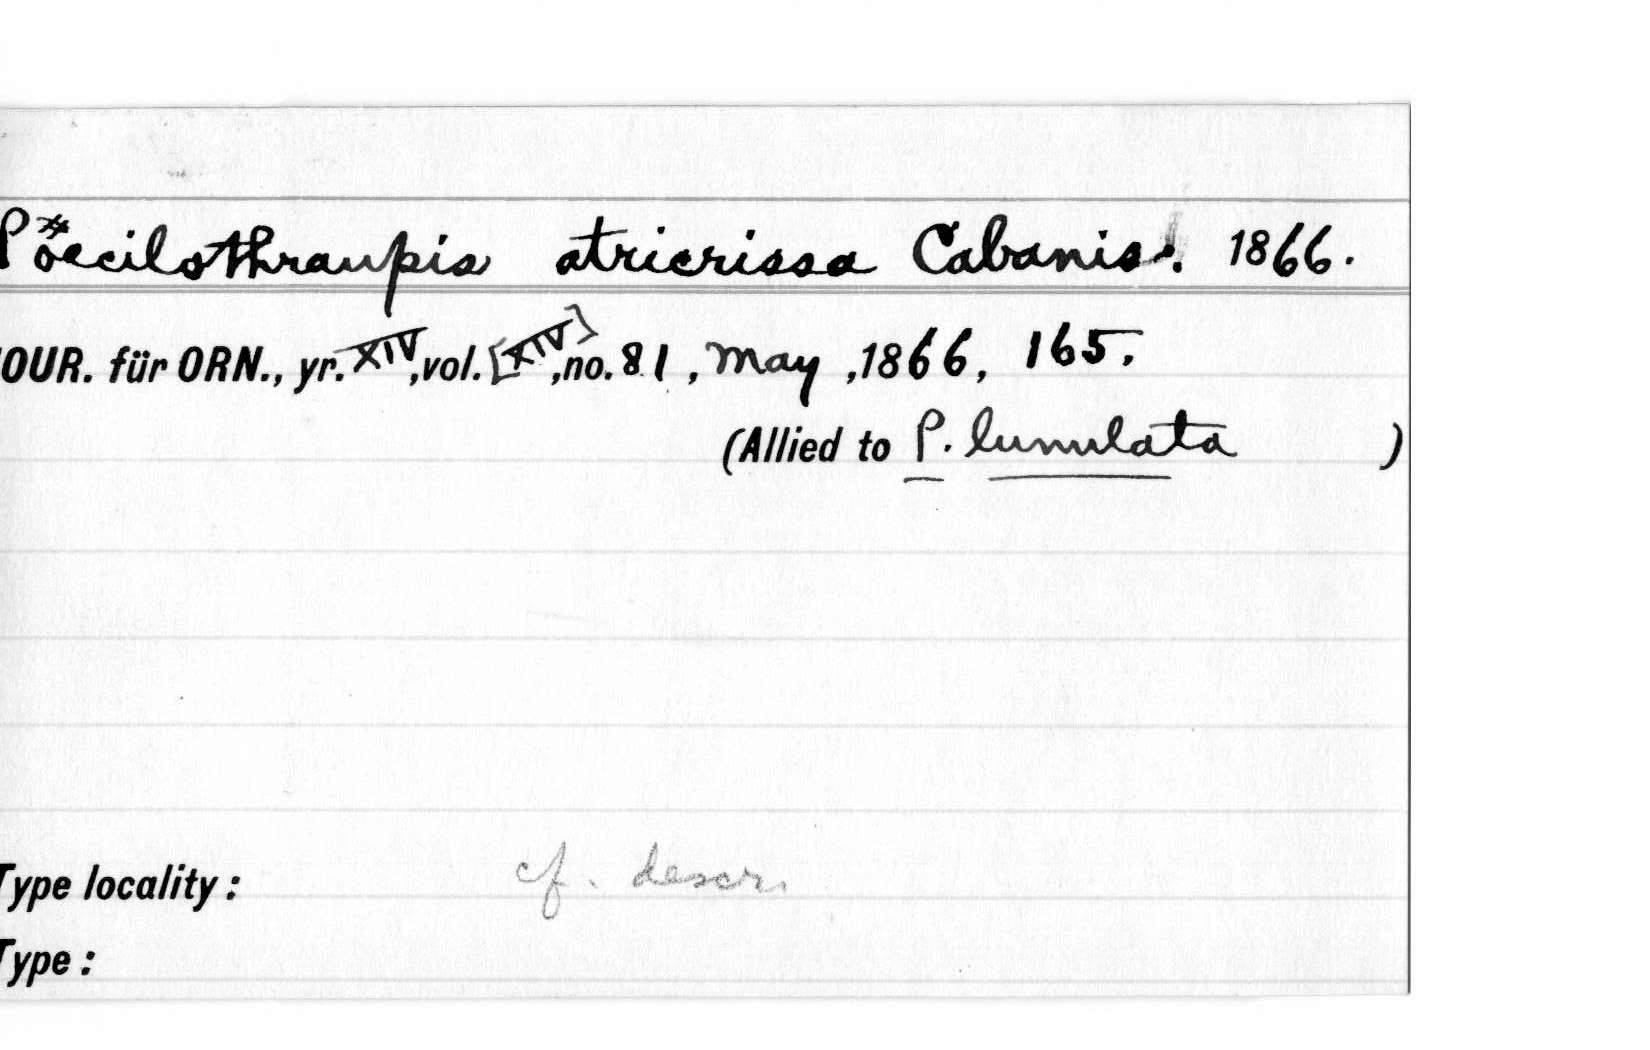 Pöecilothraupis atricrissa Cabanis. 1866.
JOUR. für ORN., yr. XIV, vol. [XIV], no. 81, May, 1866, 165.
(Allied to P. lunulata )
cf. descr.
Type locality:
Type: